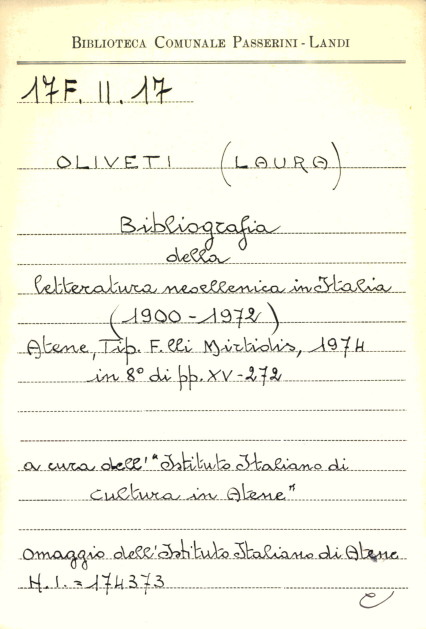 BIBLIOTECA COMUNALE PASSERINI-LANDI
17F. II. 17
OLIVETI (LAURA)
Bibliografia
della
letteratura neoellenica in Italia
(1900-1972)
Atene, Tip. F.lli Mirtidis, 1974
in 8° di pp. XV-272
a cura dell'"Istituto Italiano di
Cultura in Atene"
omaggio dell'Istituto Italiano di Atene
N.I. = 174373